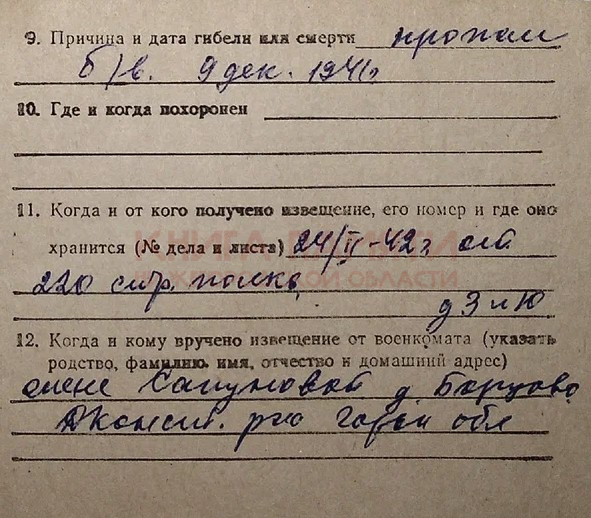 9. Причина и дата гибели или смерти пропал
б/в. 9 дек. 1941г
10. Где и когда похоронен
11. Когда и от кого получено извещение, его номер и где оно
КНИГА ПАМЯТИ
хранится (№ дела и листа) 24/II-42г от
ОБЛАСТИ
220 стр. полка
д 3 л 10
12. Когда и кому вручено извещение от военкомата (указать
родство, фамилию, имя, отчество и домашний адрес)
жене Сапуновой д. Борцово
р-на обл